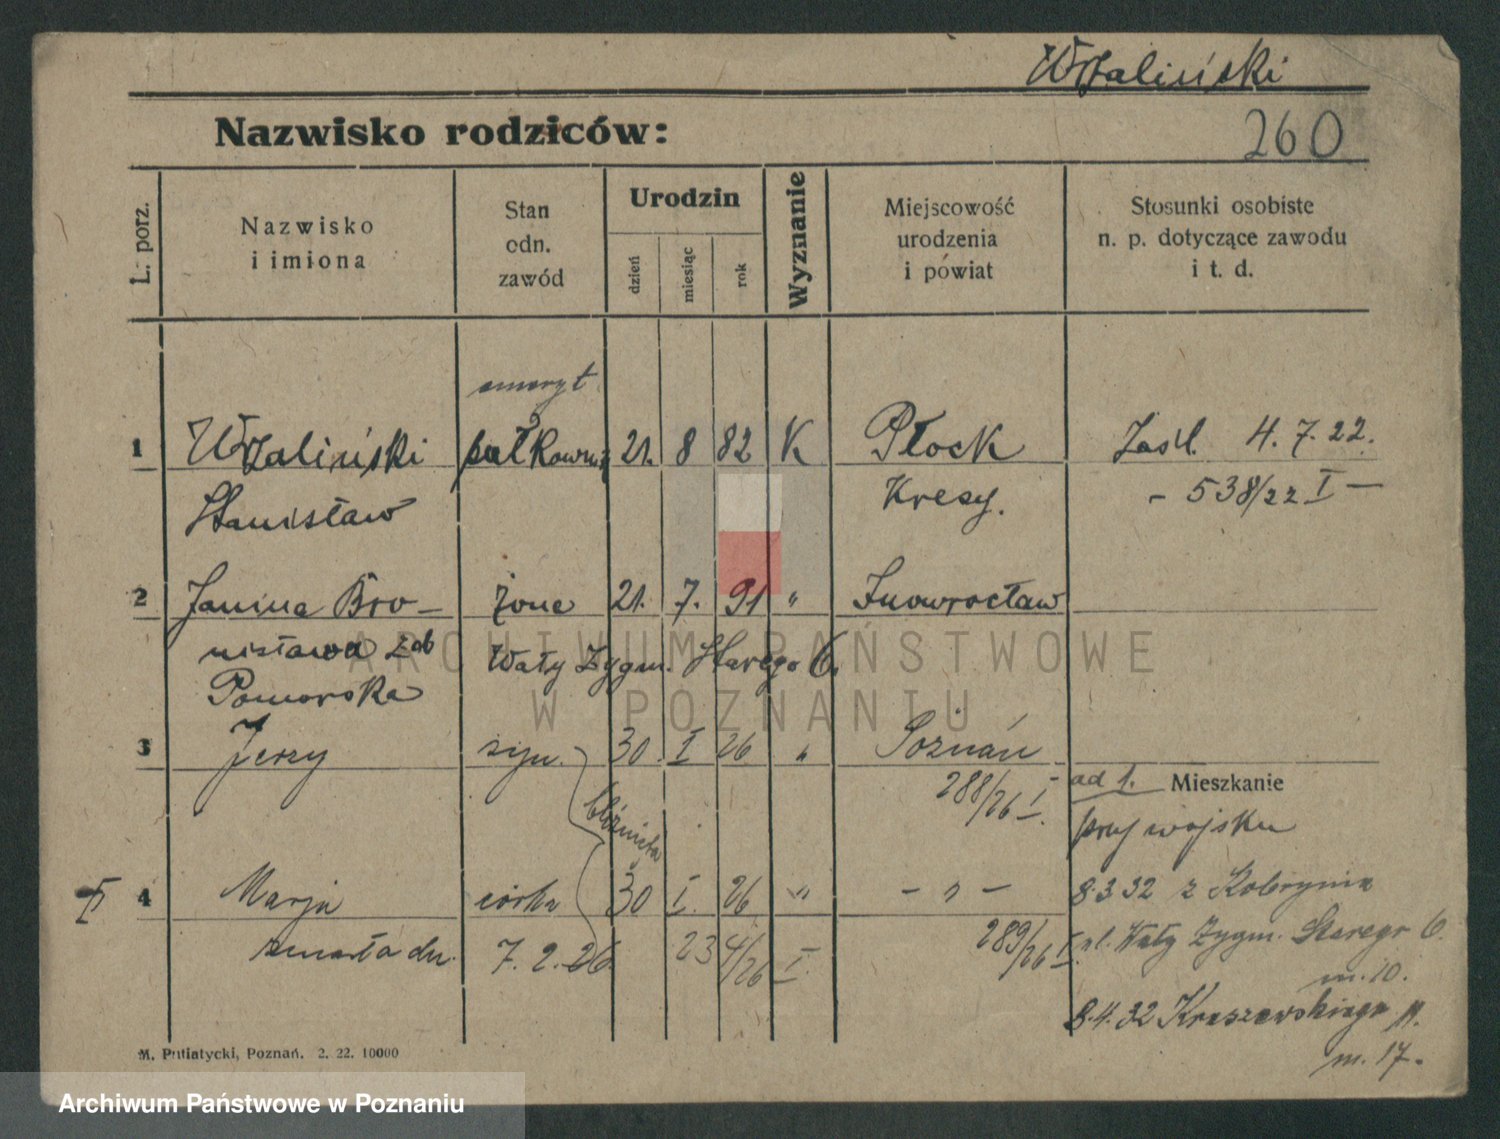 Wrzaliński
Nazwisko rodziców:
260
L. porz.
Nazwisko
i imiona
Stan
odn.
zawód
Urodzin
dzień
miesiąc
rok
Wyznanie
Miejscowość
urodzenia
i powiat
Stosunki osobiste
n. p. dotyczące zawodu
i t. d.
emeryt
1 Wrzaliński 21. 8 82 K Płock Zaśl. 4. 7. 22.
Stanisław Kresy. - 538/22 I -
2 Janina Bro- żona 21. 7. 91 " Inowrocław
nisława zob Wały Zygm. Starego 6.
Pomorska
3 Jerzy syn. 30 I 26 " Poznań
288/26 I.
ad 1. Mieszkanie
przy wojsku
bliźnięta
I 4 Marja córka 30 I. 26 " - " -
8.3.32 z Kobrynia
zmarła dn. 7. 2. 26. 23 4/26 I 289/26 I
ul. Wały Zygm. Starego 6.
m. 10.
8.4.32 Kraszewskiego 11.
m. 17.
M. Putiatycki, Poznań. 2. 22. 10000
ARCHIWUM PAŃSTWOWE
W POZNANIU
Archiwum Państwowe w Poznaniu